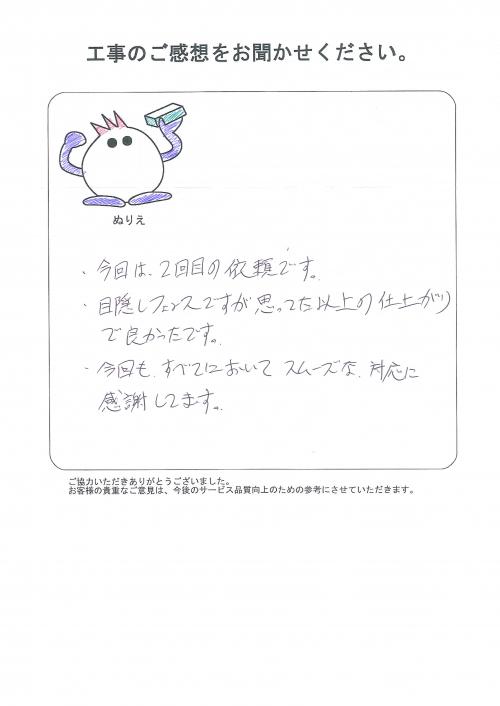 工事のご感想をお聞かせください。
ぬりえ
・今回は、2回目の依頼です。
・目隠しフェンスですが思ってた以上の仕上がり
で良かったです。
・今回も、すべてにおいてスムーズな、対応に
感謝してます。
ご協力いただきありがとうございました。
お客様の貴重なご意見は、今後のサービス品質向上のための参考にさせていただきます。